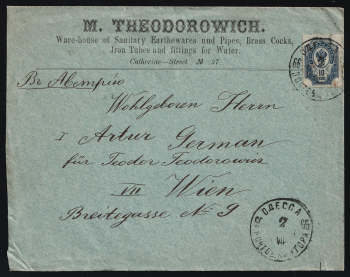 M. THEODOROWICH.
Ware-house of Sanitary Earthowares and Pipes, Brass Cocks,
Iron Tubes and fittings for Water.
Catherine—Street № 27
Въ Австрію
Wohlgeboren Herrn
Artur German
für Teodor Teodorowicz
VII Wien
Breitegasse № 9
ОДЕССА
2
VII